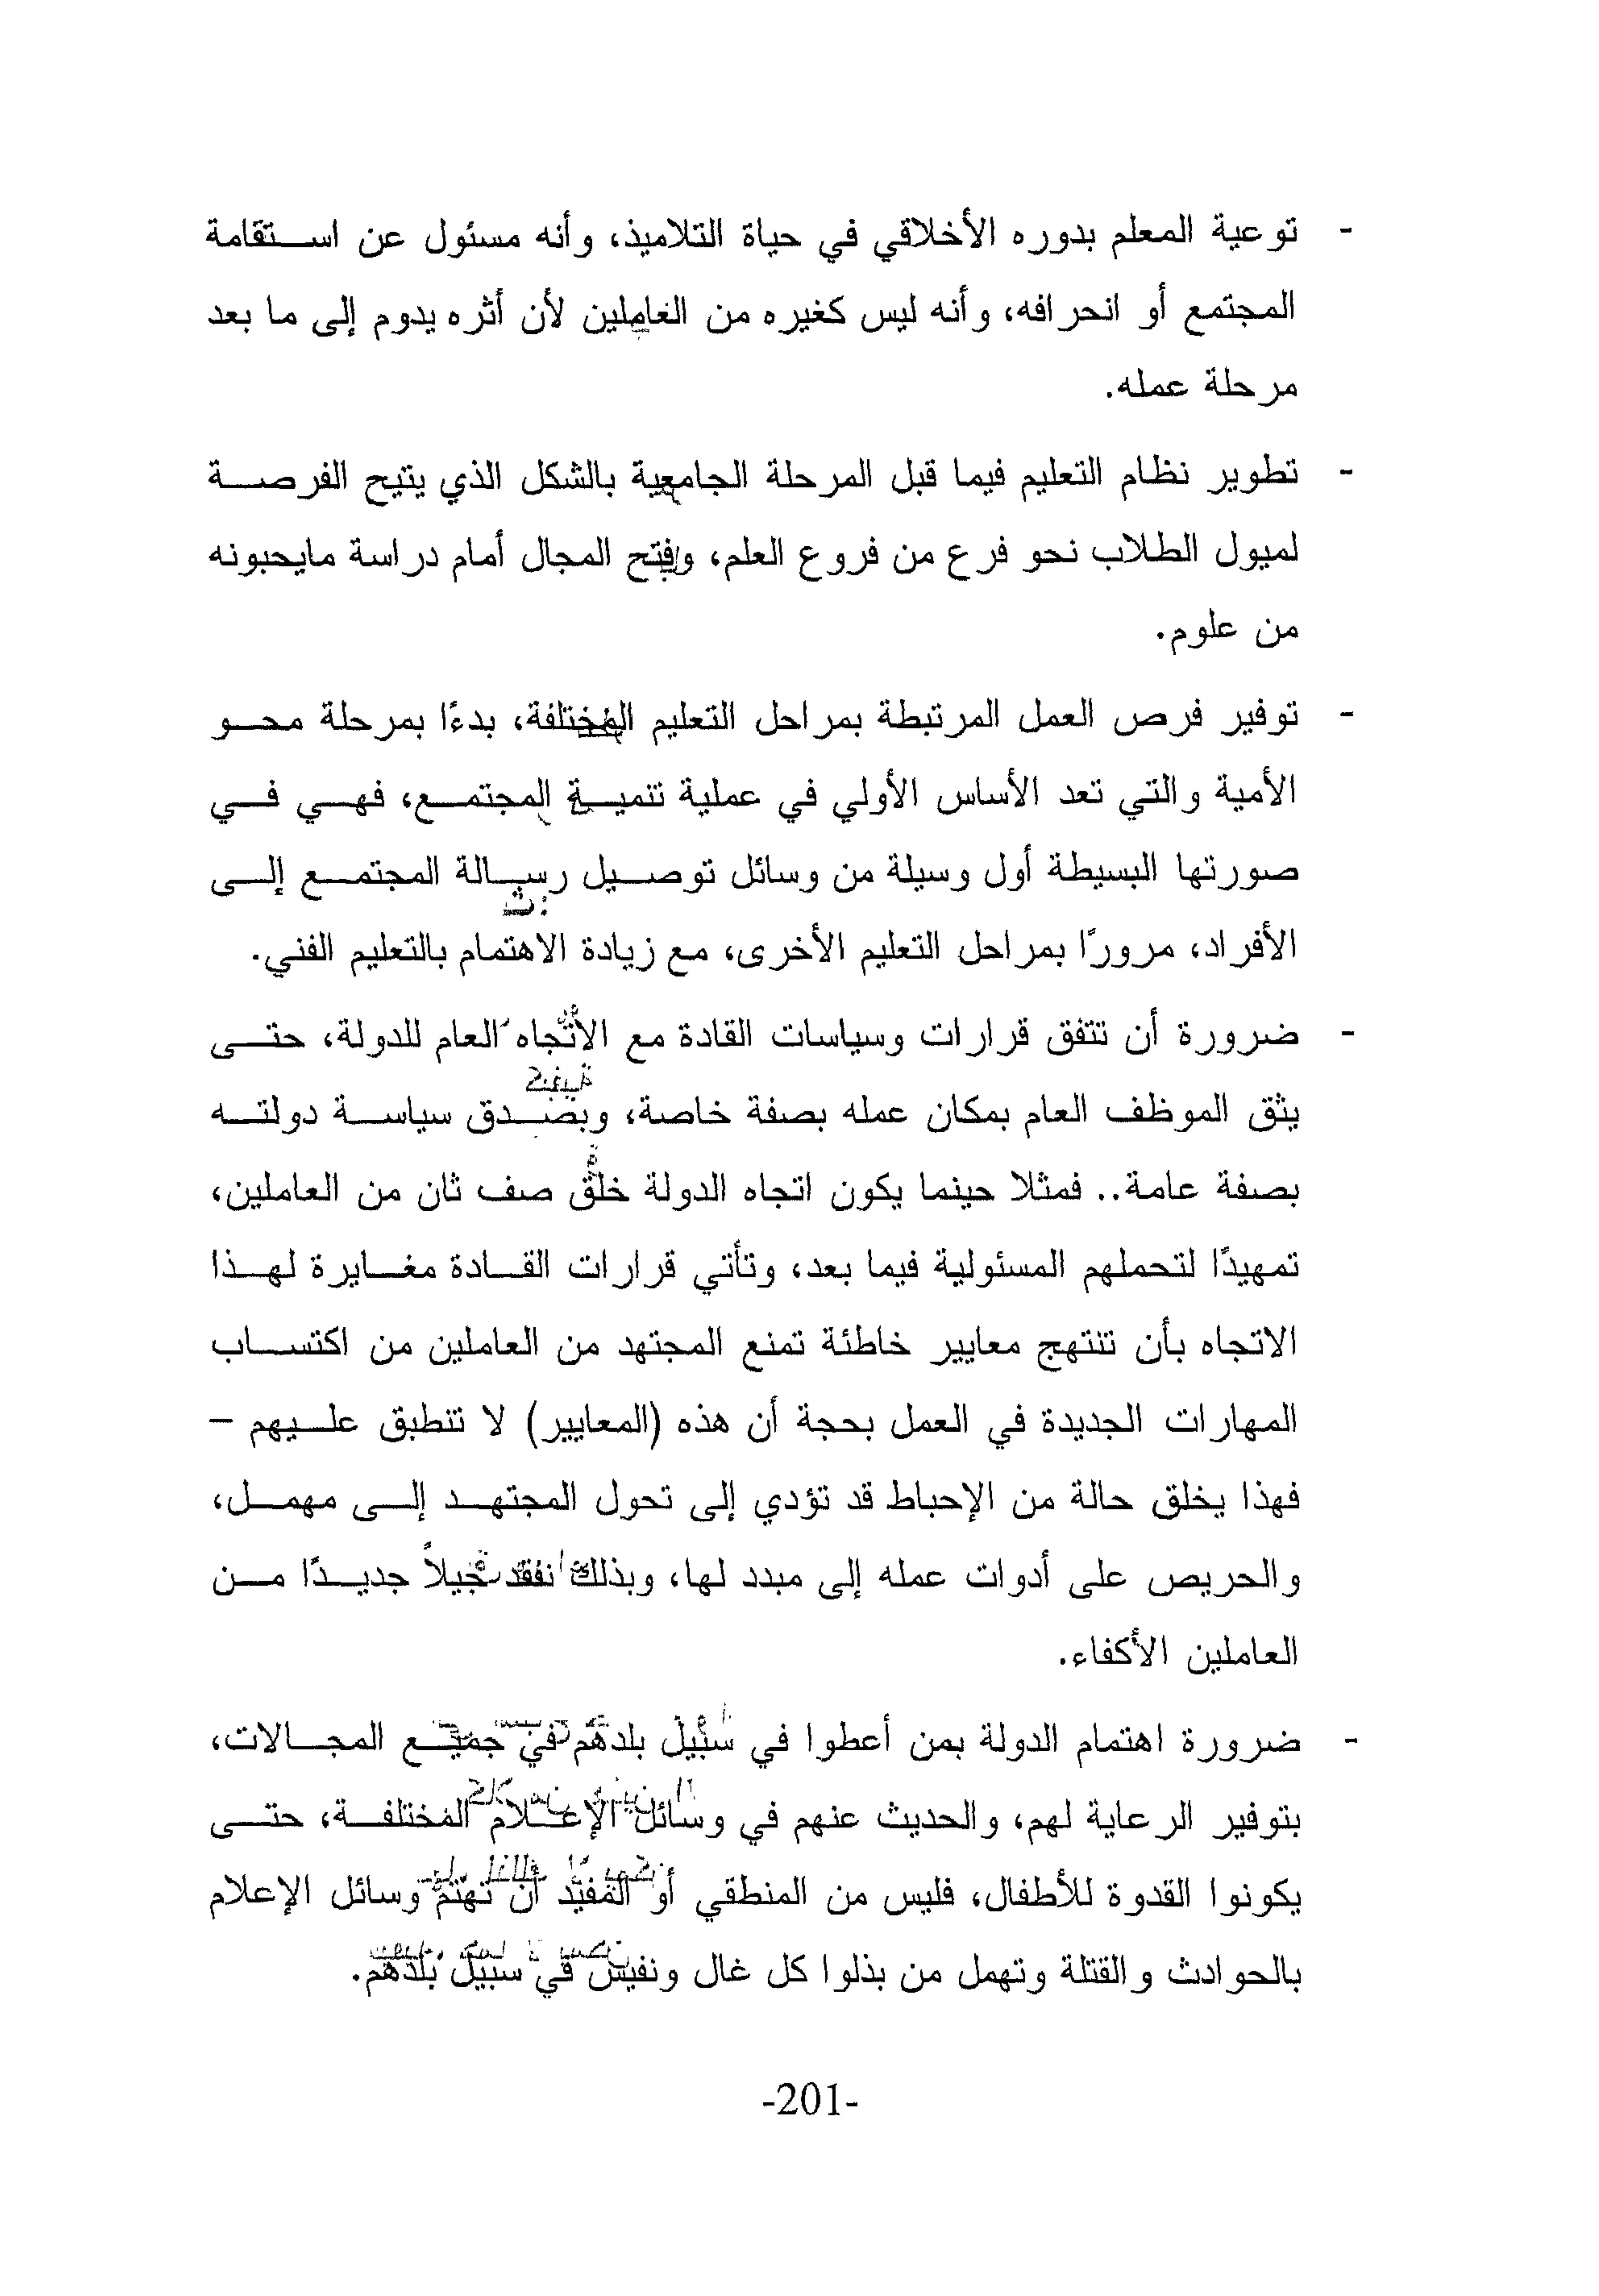 - توعية المعلم بدوره الأخلاقي في حياة التلاميذ، وأنه مسئول عن استقامة
المجتمع أو انحرافه، وأنه ليس كغيره من العاملين لأن أثره يدوم إلى ما بعد
مرحلة عمله.
- تطوير نظام التعليم فيما قبل المرحلة الجامعية بالشكل الذي يتيح الفرصة
لميول الطلاب نحو فرع من فروع العلم، وفتح المجال أمام دراسة مايحبونه
من علوم.
- توفير فرص العمل المرتبطة بمراحل التعليم المختلفة، بدءًا بمرحلة محو
الأمية والتي تعد الأساس الأولي في عملية تنمية المجتمع، فهي في
صورتها البسيطة أول وسيلة من وسائل توصيل رسالة المجتمع إلى
الأفراد، مرورًا بمراحل التعليم الأخرى، مع زيادة الاهتمام بالتعليم الفني.
- ضرورة أن تتفق قرارات وسياسات القادة مع الاتجاه العام للدولة، حتى
يثق الموظف العام بمكان عمله بصفة خاصة، ويصدق سياسة دولته
بصفة عامة.. فمثلا حينما يكون اتجاه الدولة خلق صف ثان من العاملين،
تمهيدًا لتحملهم المسئولية فيما بعد، وتأتي قرارات القادة مغايرة لهذا
الاتجاه بأن تنتهج معايير خاطئة تمنع المجتهد من العاملين من اكتساب
المهارات الجديدة في العمل بحجة أن هذه (المعايير) لا تنطبق عليهم –
فهذا يخلق حالة من الإحباط قد تؤدي إلى تحول المجتهد إلى مهمل،
والحريص على أدوات عمله إلى مبدد لها، وبذلك نفقد جيلاً جديدًا من
العاملين الأكفاء.
- ضرورة اهتمام الدولة بمن أعطوا في سبيل بلدهم في جميع المجالات،
بتوفير الرعاية لهم، والحديث عنهم في وسائل الإعلام المختلفة، حتى
يكونوا القدوة للأطفال، فليس من المنطقي أو المفيد أن تهتم وسائل الإعلام
بالحوادث والقتلة وتهمل من بذلوا كل غال ونفيس في سبيل بلدهم.
-201-